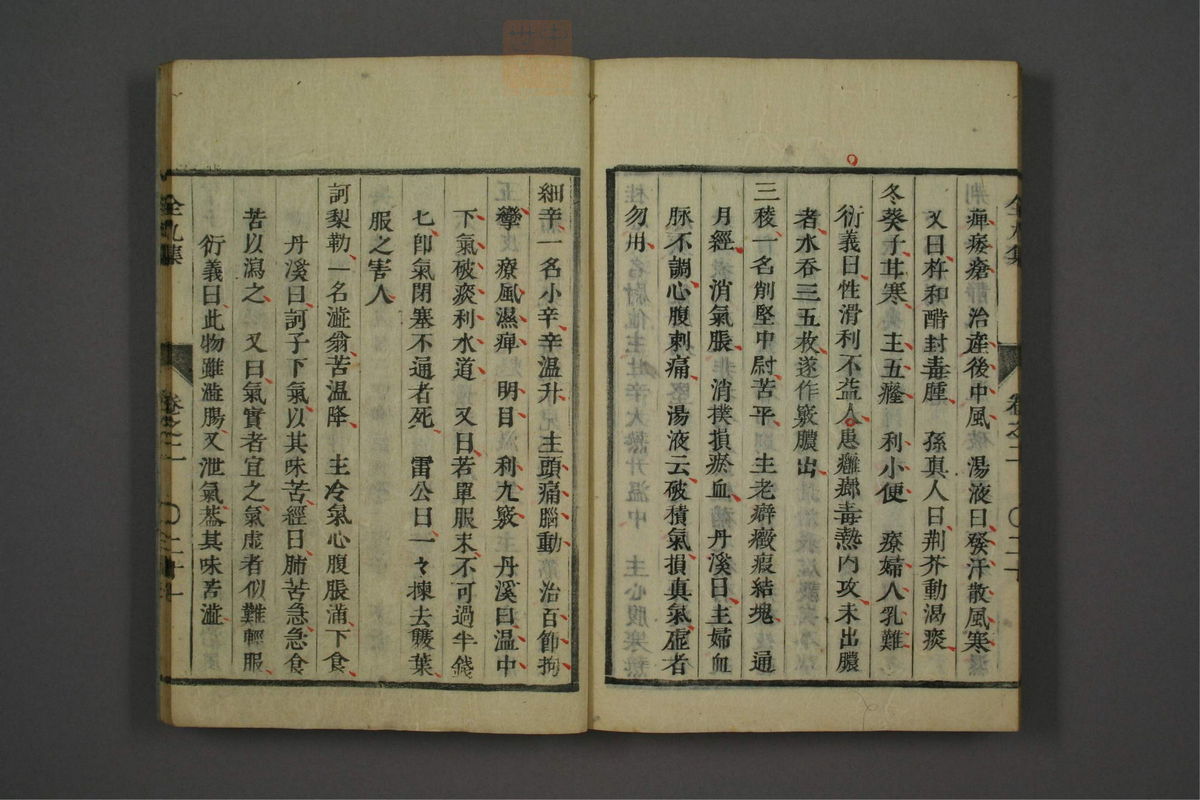 痺瘻瘡 治産後中風 湯液曰發汗散風寒
又曰杵和醋封毒腫 孫真人曰荆芥動渴痰
冬葵子甘寒 主五癃 利小便 療婦人乳難
衍義曰性滑利不益人患癰癤毒熱内攻未出膿
者水吞三五枚遂作竅膿出
三稜一名削堅中尉苦平 主老癖癥瘕結塊 通
月經 消氣脹 消撲損瘀血 丹溪曰主婦血
脉不調心腹刺痛 湯液云破積氣損真氣虛者
勿用
細辛一名小辛辛温升 主頭痛腦動 治百節拘
攣 療風濕痺 明目 利九竅 丹溪曰温中
下氣破痰利水道 又曰若單服末不可過半錢
匕卽氣閉塞不通者死 雷公曰一々揀去雙葉
服之害人
訶梨勒一名澁翁苦温降 主冷氣心腹脹滿下食
丹溪曰訶子下氣以其味苦經曰肺苦急急食
苦以瀉之 又曰氣實者宜之氣虚者似難輕服
衍義曰此物雖澁腸又泄氣蓋其味苦澁
全九集 卷之二 〇二十